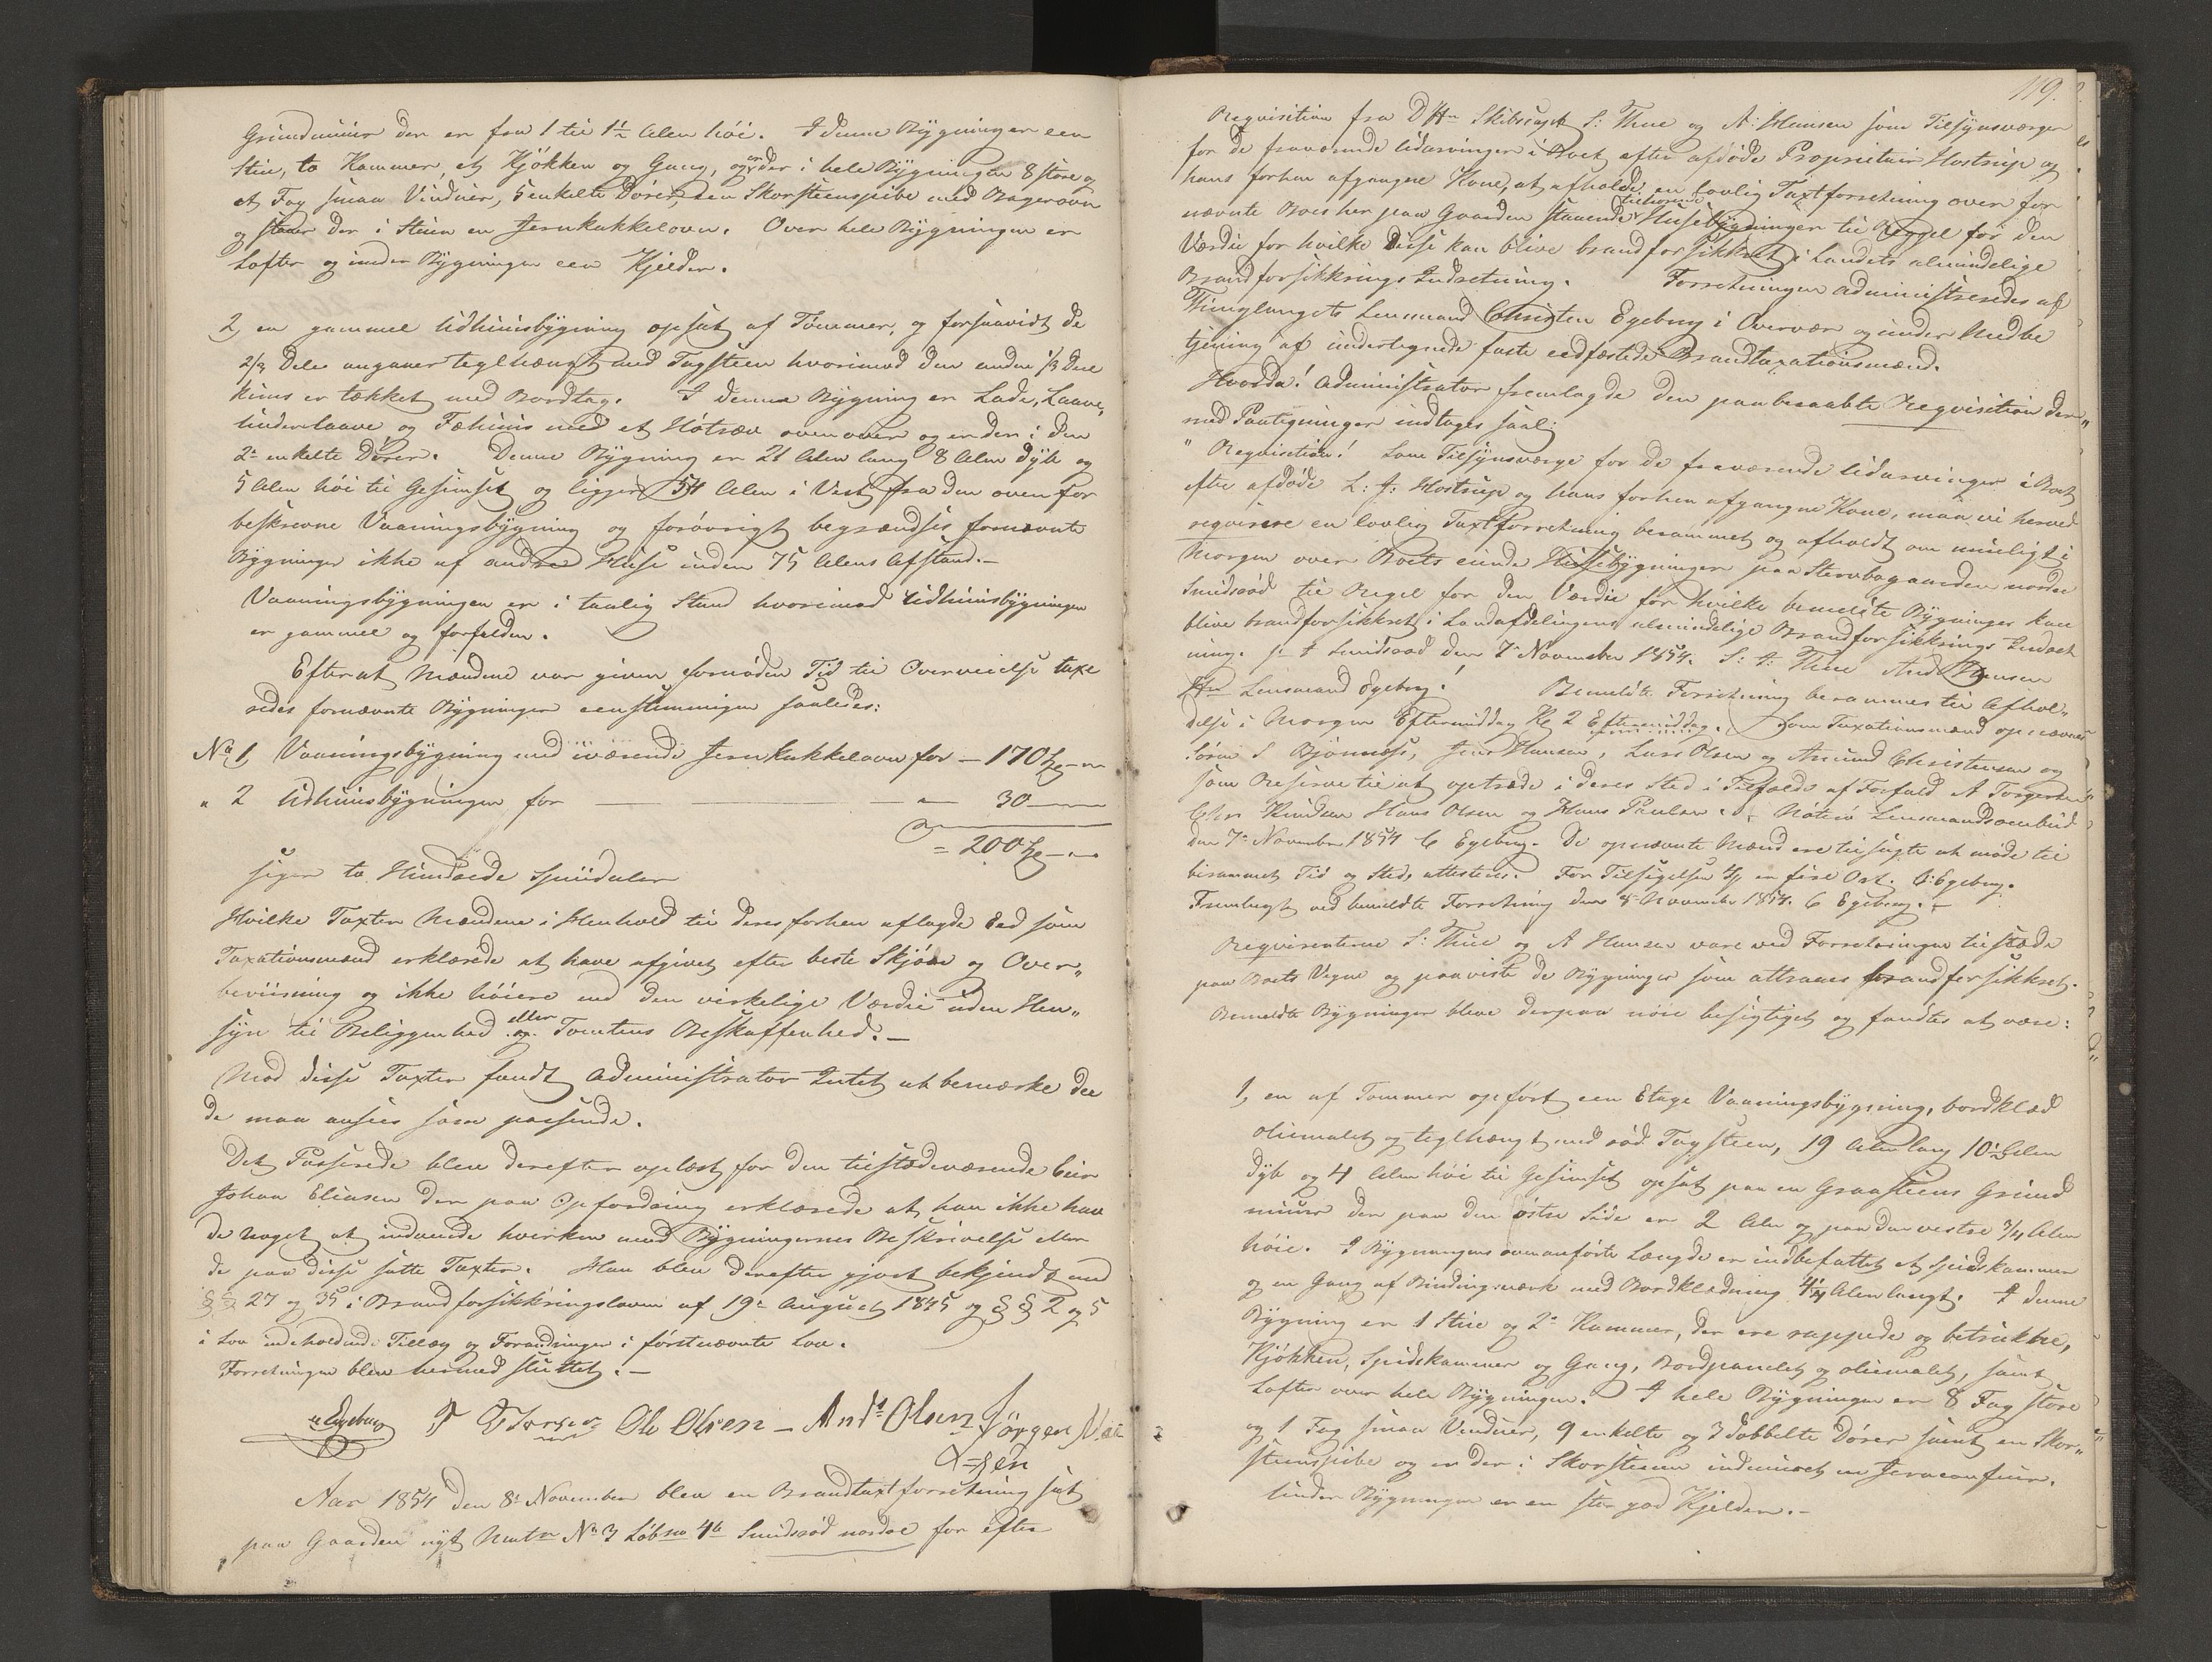 Grundmuur der er fra 1 til 1½ Alen höi. I denne Bygning er een
Stue, to Kammer, et Kjökken og Gang, og er der i hele Bygningen 8 store og
et Fag smaa Vinduer, 5 enkelte Dörer, een Skorsteenspibe med Bagerovn
og staar der i Stuen en Jernkakkelovn. Over hele Bygningen er
Lofter og under Bygningen een Kjelder.
2, en gammel Udhuusbygning opsat af Tömmer, og forsaavidt de
2/3 Dele angaaer teglhængt med Tagsteen hvorimod den anden 1/3 Deel
kuns er tækket med Bordtag. I denne Bygning er Lade, Laave,
Underlaave og Fæhuus med et Hötræv ovenover og er der i den
2de enkelte Dörer. Denne Bygning er 21 Alen lang 8 Alen dyb og
5 Alen höi til Gesimset og ligger 54 Alen i Vest fra den ovenfor
beskrevne Vaaningsbygning og forövrigt begrændses fornævnte
Bygninger ikke af andre Huse inden 75 Alens Afstand.-
Vaaningsbygningen er i taalig Stand hvorimod Udhuusbygningen
er gammel og forfalden.
Efterat Mændene var given fornöden Tid til Overveielse taxe
redes fornævnte Bygninger eenstemmigen saaledes:
No 1 Vaaningsbygning med iværende Jernkakkelovn for - 170
" 2 Udhuusbygningen for 30
= 200
siger to Hundrede Speciedaler
Hvilke Taxter Mændene i Henhold til deres forhen aflagde Eed som
Taxationsmænd erklærede at have afgivet efter beste Skjön og Over„
beviisning og ikke höiere end den virkelige Værdie uden Hen„
syn til Beliggenhed eller Tomtens Beskaffenhed.-
Mod disse Taxter fandt Administrator Intet at bemærke da
de maa ansees som passende.
Det Passerede blev derefter oplæst for den tilstædeværende Eier
Johan Eliasen der paa Opfordring erklærede at han ikke hav
de noget at indvende hverken mod Bygningernes Beskrivelse eller
de paa disse satte Taxter. Han blev derefter gjort bekjendt med
§§ 27 og 35 i Brandforsikkringsloven af 19de August 1845 og §§ 2 og 5
i Lov indeholdende Tillæg og Forandringer i förstnævnte Lov.
Forretningen blev hermed sluttet.-
C Egeberg Ole Olsen - Ands Olsen Jörgen
Aar 1854 den 8de November blev en Brandtaxtforretning sat
paa Gaarden nyt Matr No 3 Löbno 4b Smidsröd nordre for efter
119.
Requisition fra DHrr Skibscapt S: Thue og A: Hansen som Tilsynsværger
for de fraværende Udarvinger i Boet efter afdöde Proprietair Hostrup og
hans forhen afgangne Kone, at afholde en lovlig Taxtforretning over for
nævnte Boes her paa Gaarden staaende tilhörende Huusebygninger til Regel for den
Værdie for hvilke disse kan blive brandforsikkret i Landets almindelige
Brandforsikkrings Indretning. Forretningen administreredes af
Thinglaugets Lensmand Christen Egeberg i Overvær og under Medbe
tjening af undertegnede faste eedfæstede Brandtaxationsmænd.
Hvorda! Administrator fremlagde den paaberaabte Requisition der„
med Paategninger indtages saal:
" Requisition! Som Tilsynsværge for de fraværende Udarvinger i Boet
efter afdöde L: J: Hostrup og hans forhen afgangne Kone, maa vi herved
requirere en lovlig Taxtforretning berammet og afholdt om muligt i
Morgen over Boets eiende Huusebygninger paa Stervbogaarden nordre
Smidsröd til Regel for den Værdie for hvilke bemeldte Bygninger kan
blive brandforsikkret i Landafdelingens almindelige Brandforsikkrings Indret
ning. p t Smidsröd den 7de November 1854. S: A: Thue And Hansen
Hrr Lensmand Egeberg! Bemeldte Forretning berammes til Afhol„
delse i Morgen Eftermiddag Kl 2 Eftermiddag. Som Taxationsmænd opnævnes
Sören S Bjönnæss, Jens Hansen, Lars Olsen og Amund Christensen og
som Reserve til at optræde i deres Sted i Tilfælde af Forfald A Torgersen
Chr Knudsen Hans Olsen og Hans Paulsen. Nöterö Lensmandsombud
den 7de November 1854 C Egeberg. De opnævnte Mænd ere tilsagte at möde til
berammet Tid og Sted, attesteres. For Tilsigelsen er fire Ort. C: Egeberg.
Fremlagt ved bemeldte Forretning den 8de November 1854. C Egeberg.-
Requirenterne S: Thue og A Hansen vare ved Forretningen tilstæde
paa Boets Vegne og paaviste de Bygninger som attraaes brandforsikkret.
Bemeldte Bygninger bleve derpaa nöie besigtiget og fandtes at være:
1, en af Tömmer opfört een Etage Vaaningsbygning, bordklæd
oliemalet og teglhængt med röd Tagsteen, 19 Alen lang 10½ Alen
dyb og 4 Alen höi til Gesimset opsat paa en Graasteens Grund
muur der paa den östre Side er 2 Alen og paa den vestre 3/4 Alen
höie. I Bygningens ovenanförte Længde er indbefattet et Spiiskammer
og en Gang af Bindingsværk med Bordklædning 4¼ Alen langt. I denne
Bygning er 1 Stue og 2de Kammer, der ere rappede og betrukne,
Kjökken, Spiiskammer og Gang, Bordpanelet og oliemalet, samt
Lofter over hele Bygningen. I hele Bygningen er 8 Fag store
og 1 Fag smaa Vinduer, 9 enkelte og 3 dobbelte Dörer samt en Skor„
steenspibe og er der i Skorstenen indmuret en Jerncomfuur.
Under Bygningen er en stor god Kjelder.-